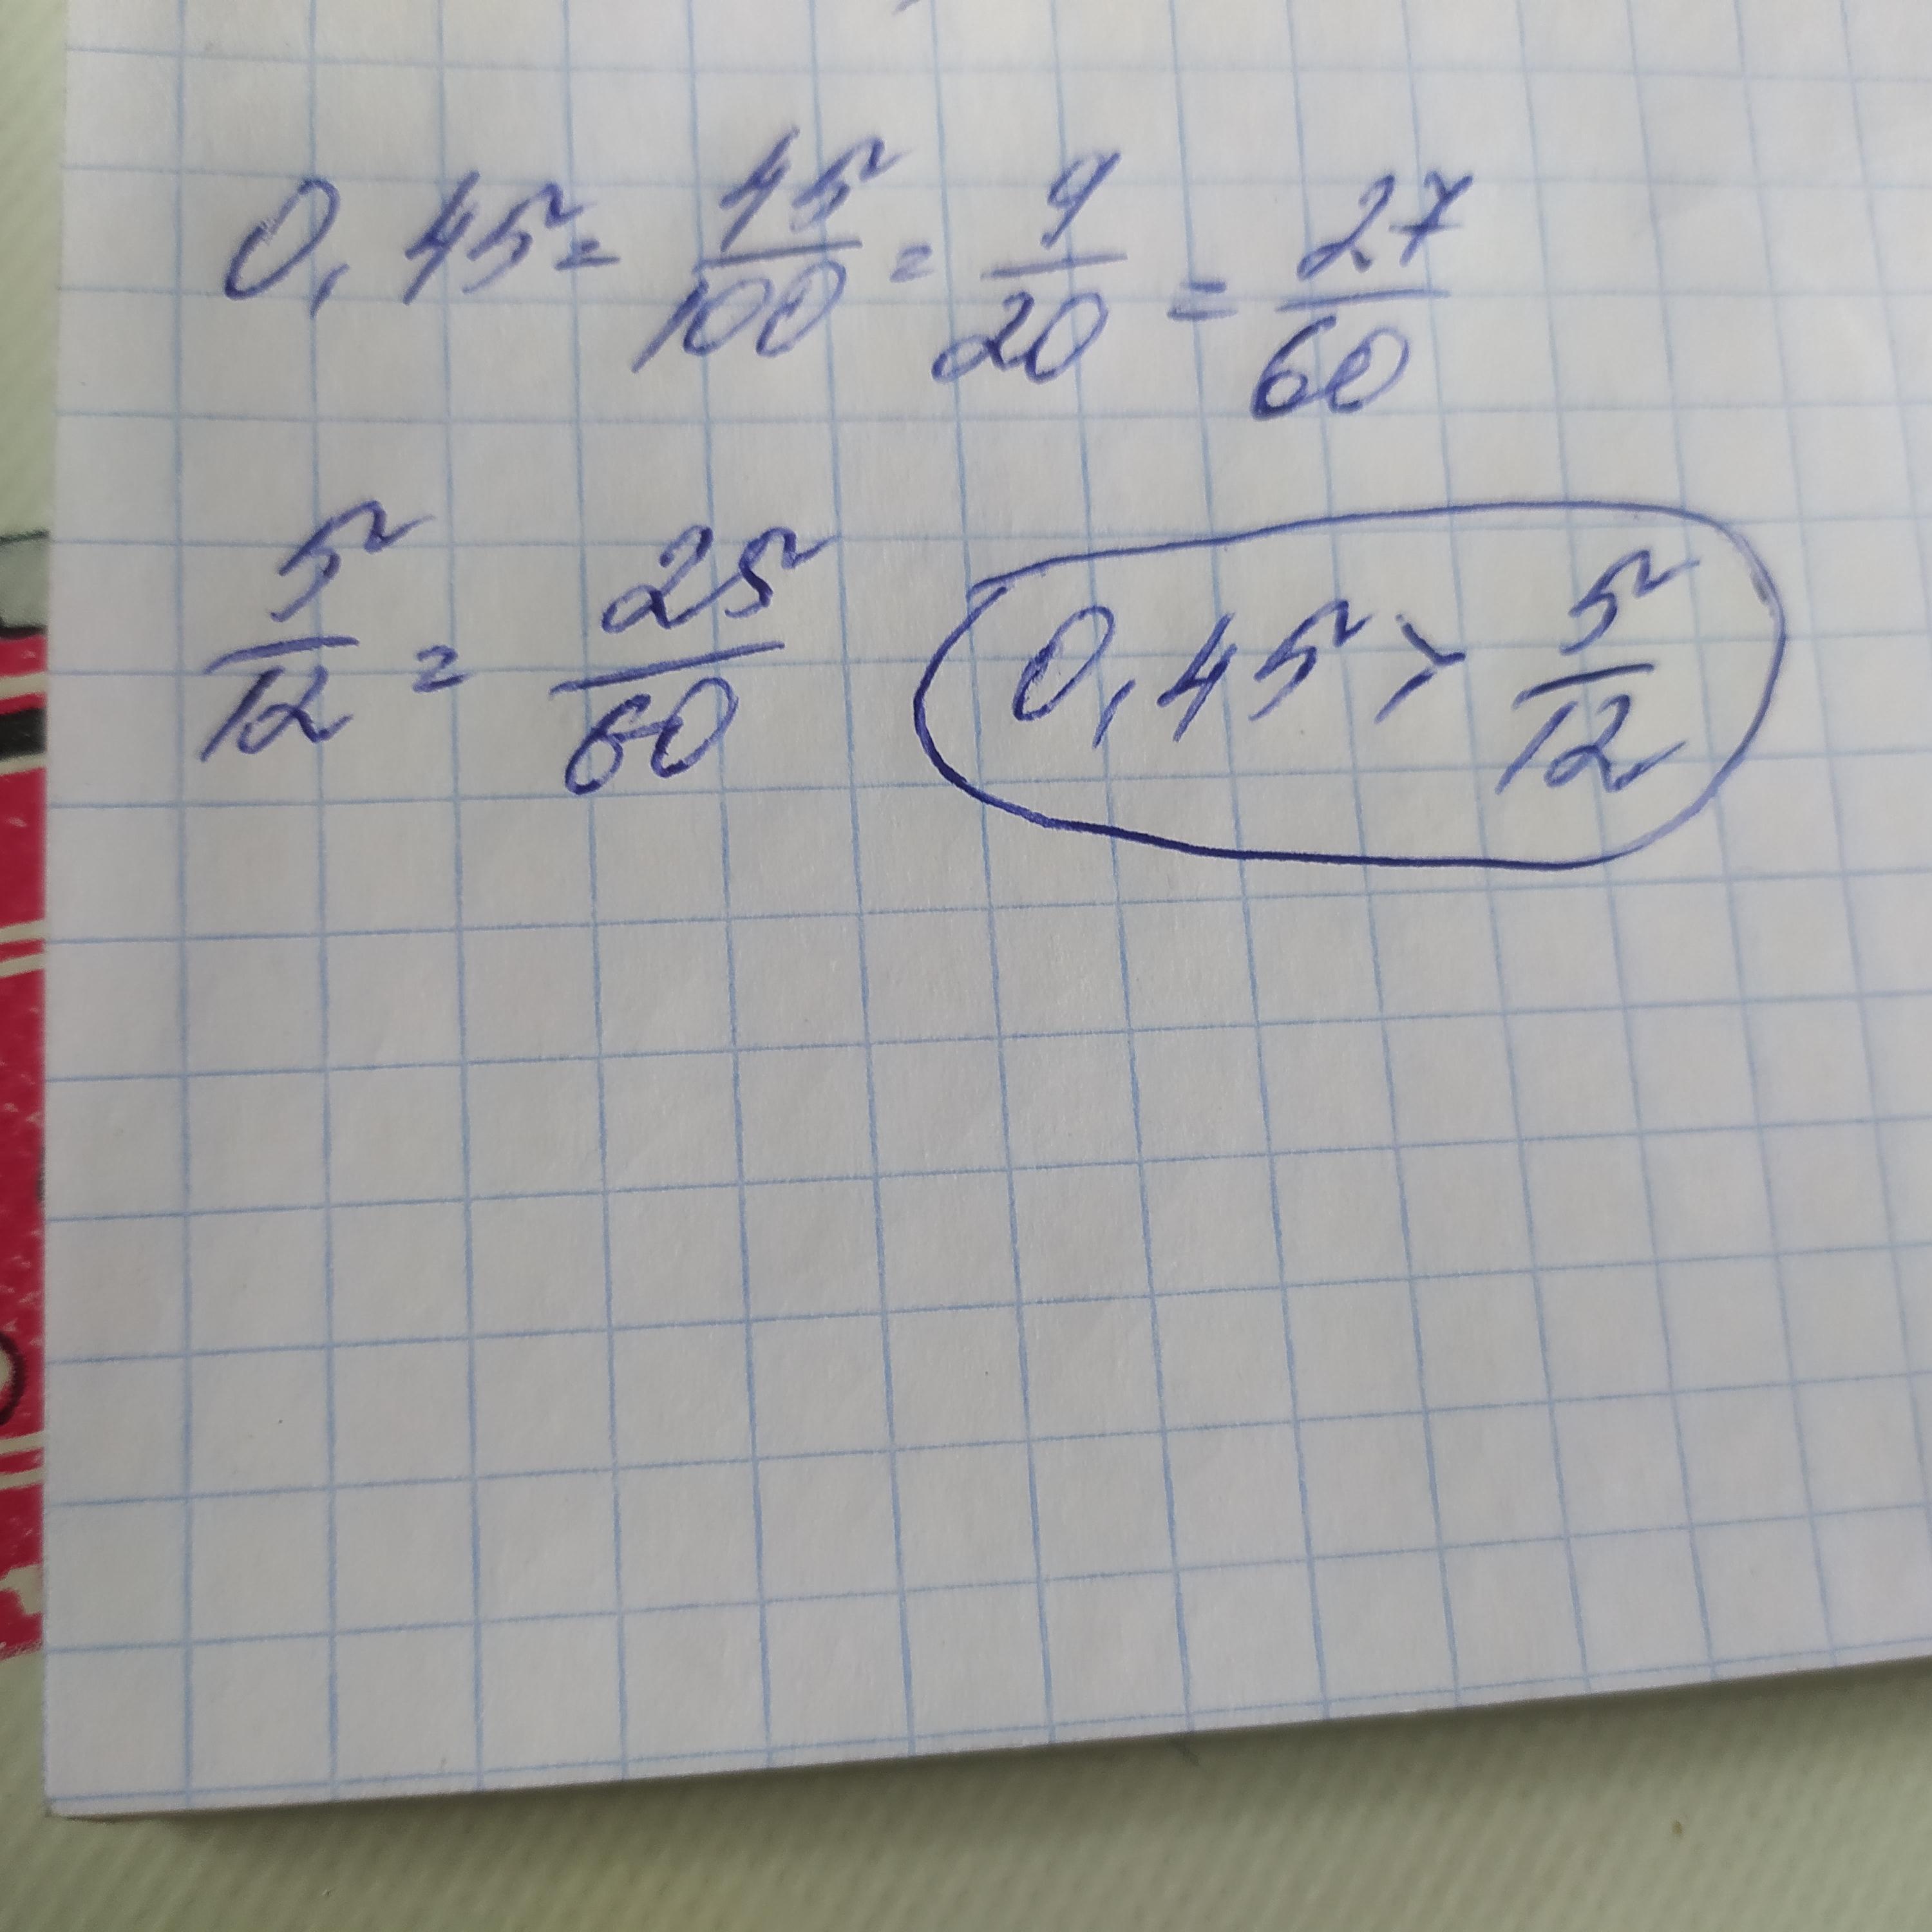 0,45 = 45/100 = 9/20 = 27/60
5/12 = 25/60 0,45 > 5/12